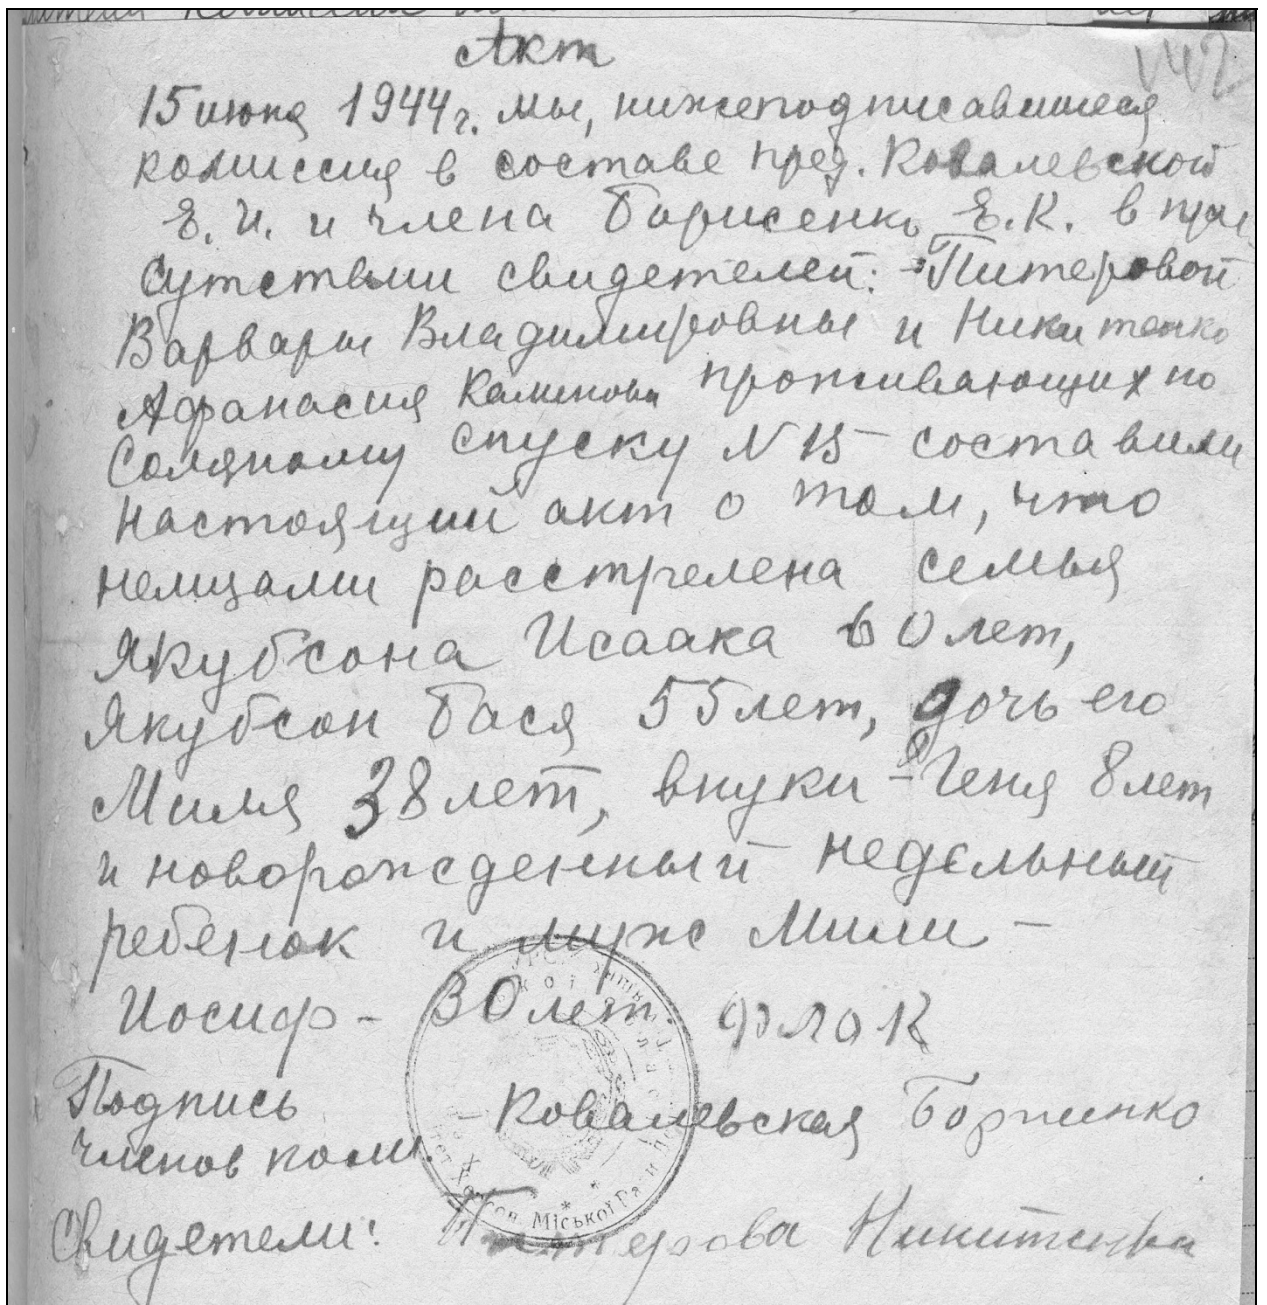 Акт
15 июня 1944 г. мы, нижеподписавшиеся
комиссия в составе пред. Ковалевской
Е. И. и члена Борисенко Е. К. в при
сутствии свидетелей: Питеровой
Варвары Владимировны и Никитенко
Афанасия проживающих по
Соляному спуску N 15 – составили
настоящий акт о том, что
немцами расстрелена семья
Якубсона Исаака 60 лет,
Якубсон Бася 55 лет, дочь его
Миля 38 лет, внуки – Геня 8 лет
и новорожденный недельный
ребенок и муж Мили –
Иосиф – 30 лет.
Подпись – Ковалевская
членов комис.
Свидетели: Питерова
Херсон. Міської Ра